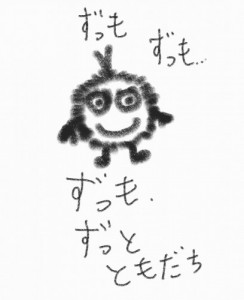 ずっも
ずっも...
ずっも.
ずっと
ともだち